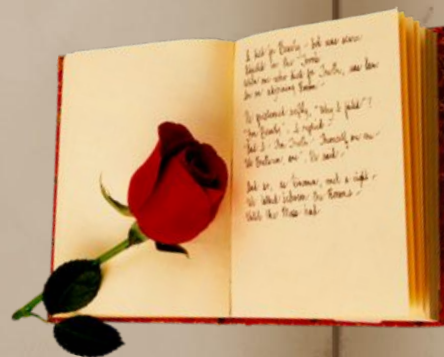 I died for Beauty - but was scarce
Adjusted in the Tomb
When one who died for Truth, was lain
In an adjoining Room -
He questioned softly, "Why I failed"?
"For Beauty", I replied -
"And I - for Truth - Themself are one -
We Brethren, are", He said -
And so, as Kinsmen, met a night -
We talked between the Rooms -
Until the Moss had